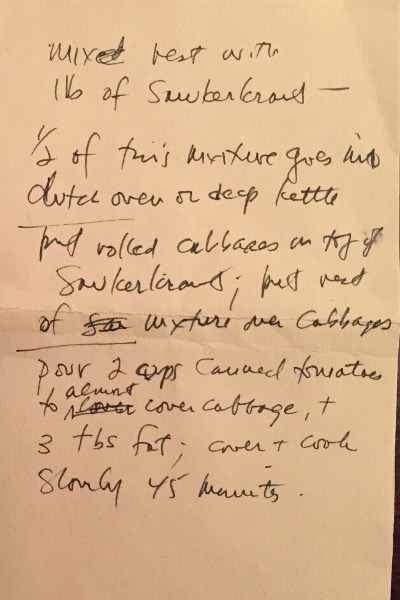 mixed rest with
1 lb of Sauerkraut —
1/2 of this mixture goes into
dutch oven or deep kettle
put rolled cabbages on top of
Sauerkraut; put rest
of mixture over Cabbages
pour 2 cups Canned tomatoes
to almost cover cabbage, +
3 tbs fat; cover + cook
Slowly 45 minutes.